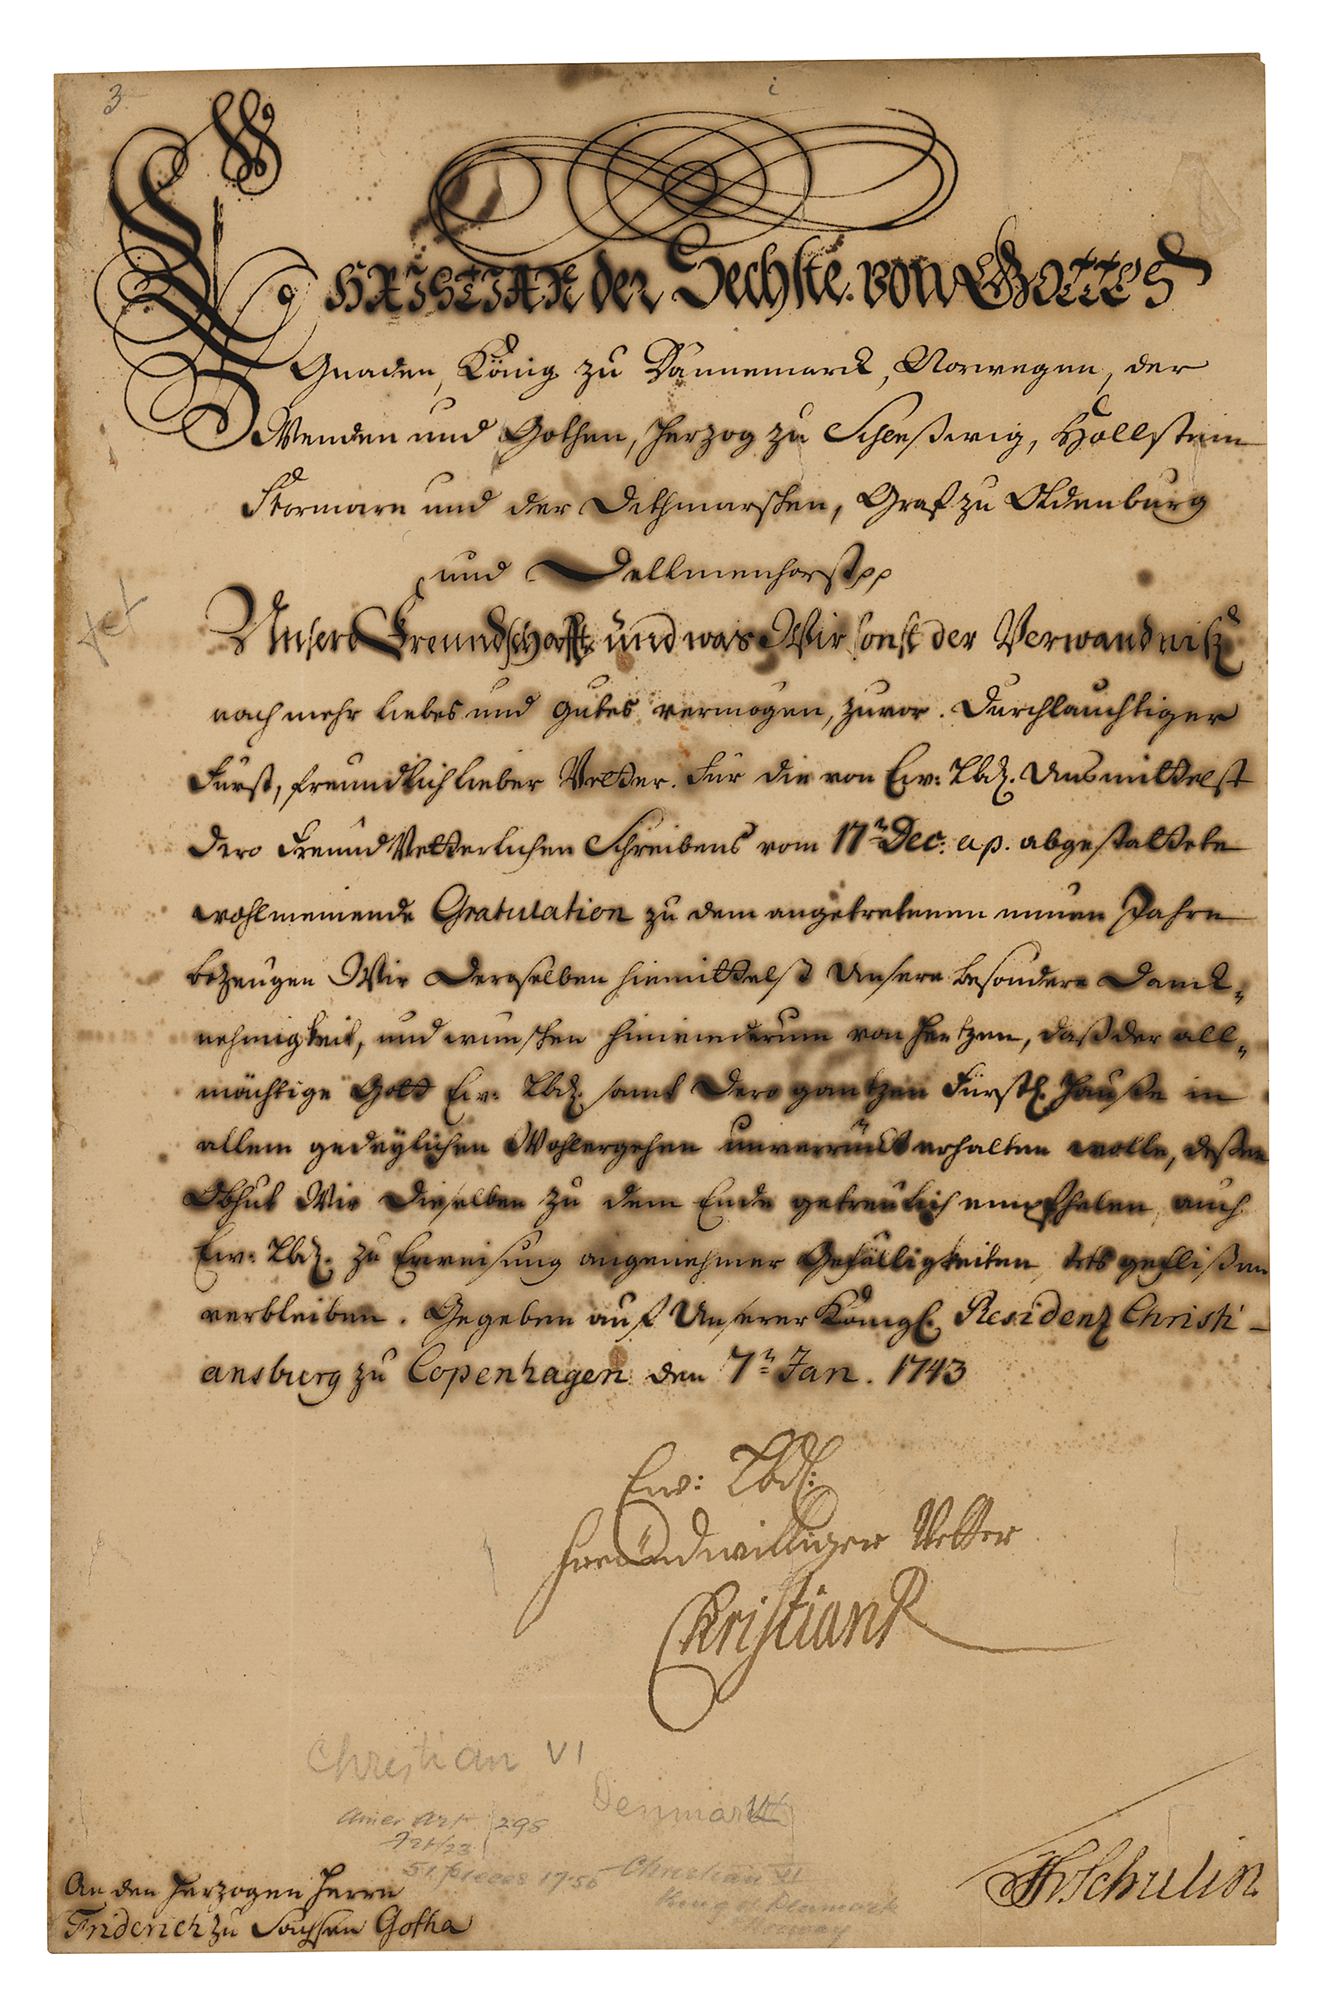 3
CHRISTIAN der Sechste. von GOTTES
Gnaden, König zu Dännemarck, Norwegen, der
Wenden und Gothen, Herzog zu Schleßwig, Hollstein
Stormarn und der Dithmarschen, Graf zu Oldenburg
und Dellmenhorst pp
Unsere Freundschafft und was Wir sonst der Verwandniß
nach mehr Liebes und Gutes vermögen, zuvor. Durchlauchtiger
Fürst, freundlich lieber Vetter. Für die von Ew: Lbd. Uns mittelst
Dero FreundVetterlichen Schreibens vom 17n Dec: a.p. abgestattete
wohlmeinende Gratulation zu dem angetretenen neuen Jahre
bezeugen Wir Deroselben hiemittelst Unsere besondere Danck-
nehmigkeit, und wünschen hinwiederum von Hertzen, daß der all-
mächtige Gott Ew: Lbd. samt Dero gantzen Fürstl. Hause in
allem gedeylichen Wohlergehen unverrückt erhalten wolle, deßen
Obhut Wir Dieselben zu dem Ende getreulich empfhelen, auch
Ew: Lbd. zu Erweisung angenehmer Gefälligkeiten stets geflißen
verbleiben. Gegeben auf Unserer Königl. Residenz Christi-
ansburg zu Copenhagen den 7n Jan. 1743
Ew: Lbd:
freundwilliger Vetter
Christian R
Christian VI
Denmark
Amer Art 298
51 pieces 1756
Christian VI
King of Denmark
Norway
JHSchulin.
An den Herzogen Herrn
Friderich zu Sachsen Gotha